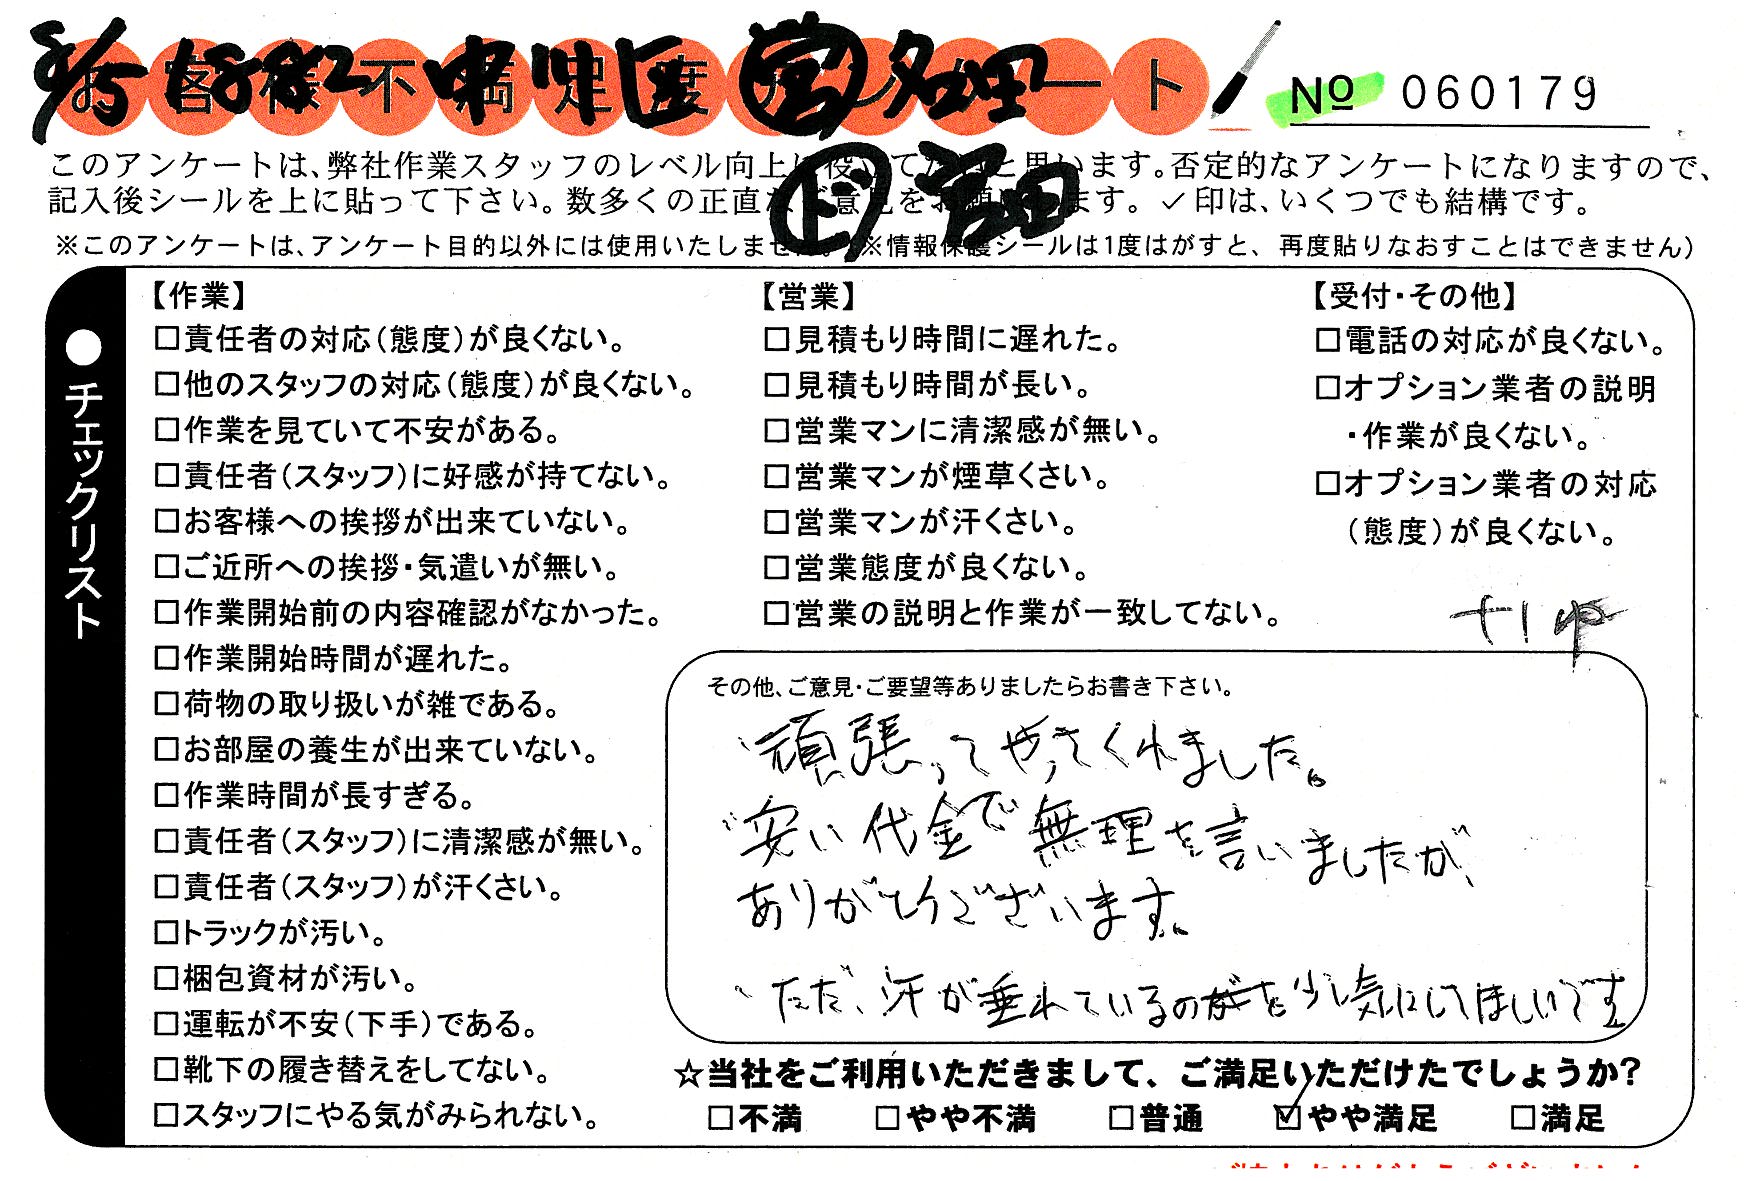 お客様不満足度アンケート
№ 060179
このアンケートは、弊社作業スタッフのレベル向上に役立てたいと思います。否定的なアンケートになりますので、
記入後シールを上に貼って下さい。数多くの正直なご意見をお願いします。✓印は、いくつでも結構です。
※このアンケートは、アンケート目的以外には使用いたしません。(※情報保護シールは1度はがすと、再度貼りなおすことはできません)
●チェックリスト
【作業】
□責任者の対応(態度)が良くない。
□他のスタッフの対応(態度)が良くない。
□作業を見ていて不安がある。
□責任者(スタッフ)に好感が持てない。
□お客様への挨拶が出来ていない。
□ご近所への挨拶・気遣いが無い。
□作業開始前の内容確認がなかった。
□作業開始時間が遅れた。
□荷物の取り扱いが雑である。
□お部屋の養生が出来ていない。
□作業時間が長すぎる。
□責任者(スタッフ)に清潔感が無い。
□責任者(スタッフ)が汗くさい。
□トラックが汚い。
□梱包資材が汚い。
□運転が不安(下手)である。
□靴下の履き替えをしてない。
□スタッフにやる気がみられない。
【営業】
□見積もり時間に遅れた。
□見積もり時間が長い。
□営業マンに清潔感が無い。
□営業マンが煙草くさい。
□営業マンが汗くさい。
□営業態度が良くない。
□営業の説明と作業が一致してない。
【受付・その他】
□電話の対応が良くない。
□オプション業者の説明
・作業が良くない。
□オプション業者の対応
(態度)が良くない。
その他、ご意見・ご要望等ありましたらお書き下さい。
頑張ってやってくれました。
安い代金で無理を言いましたが、
ありがとうございます。
ただ、汗が垂れているのを少し気にしてほしいです
☆当社をご利用いただきまして、ご満足いただけたでしょうか?
□不満 □やや不満 □普通 ☑やや満足 □満足